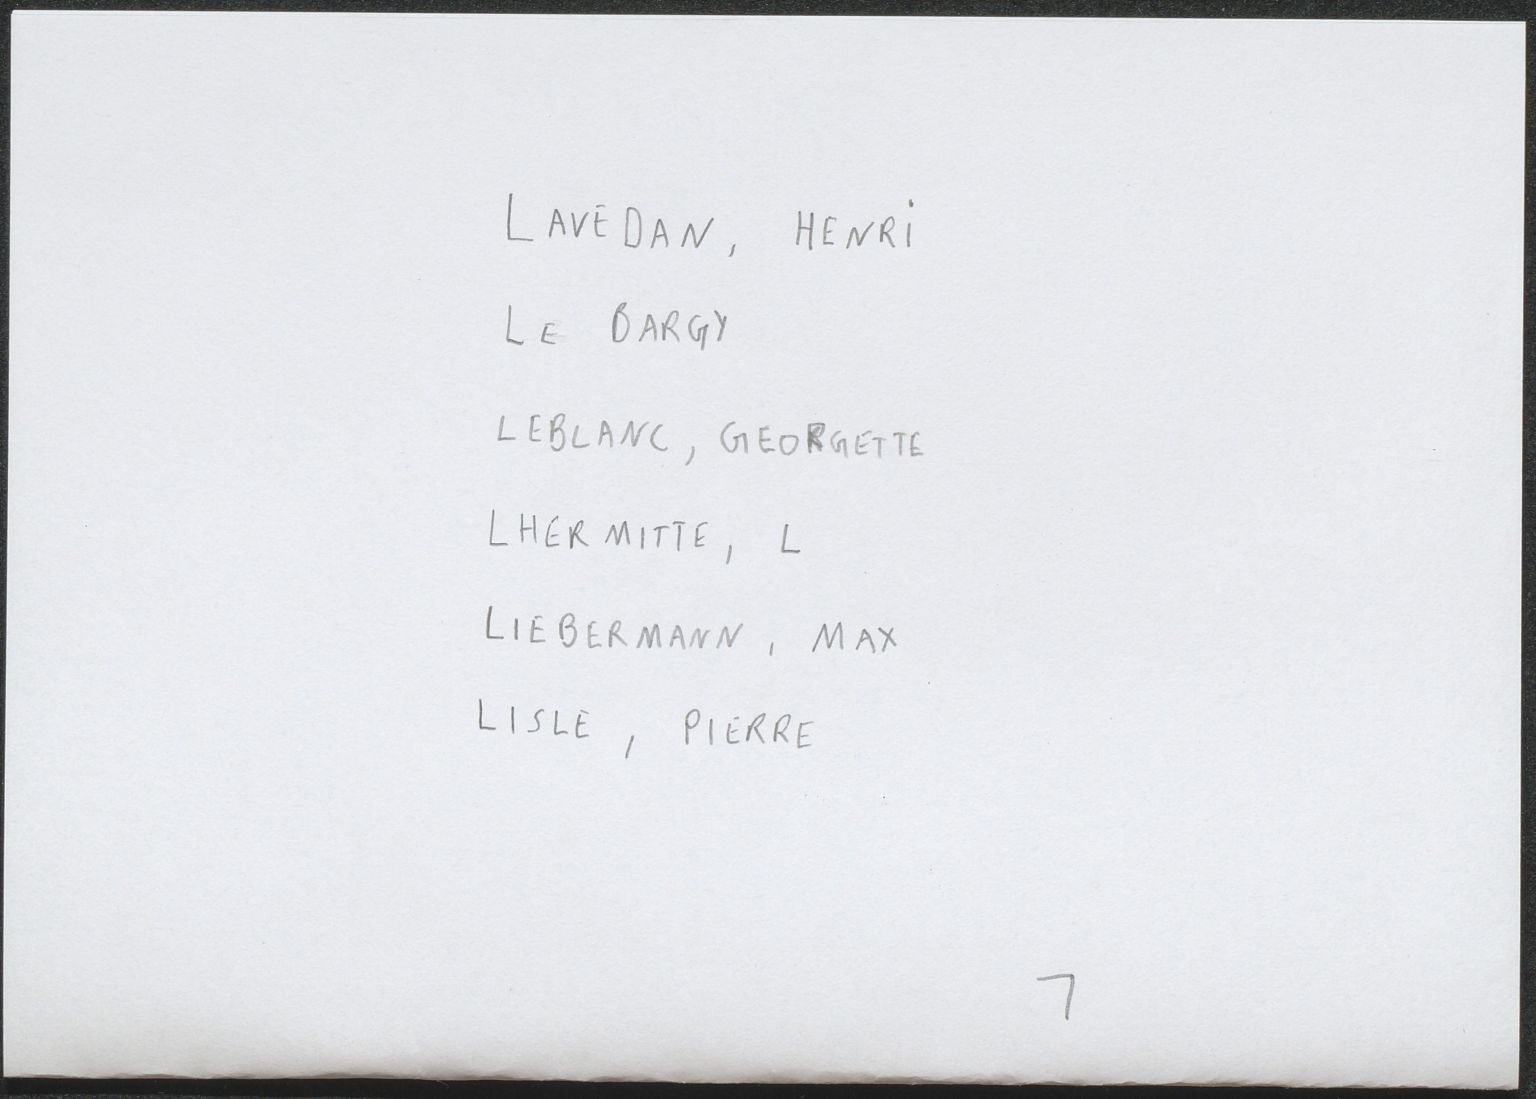 LAVEDAN, HENRi
LE BARGY
LEBLANC, GEORGETTE
LHERMITTE, L
LIEBERMANN, MAX
LISLE, PIERRE
7